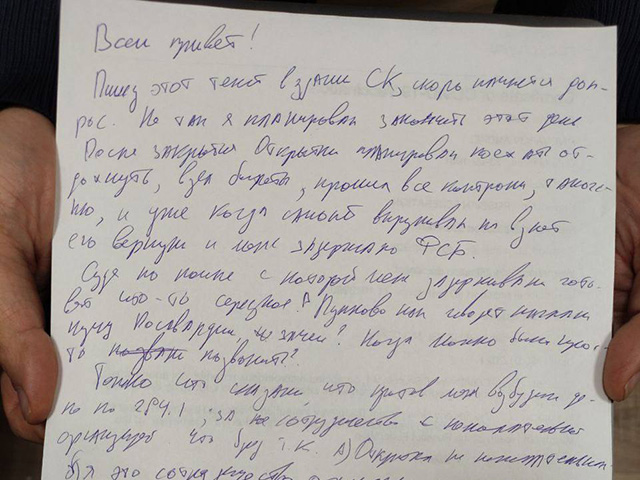 Всем привет!
Пишу этот текст в здании СК, скоро начнется доп-
рос. Не так я планировал закончить этот день
После закрытия Открытки планировал поехать от-
дохнуть, взял билеты, прошел все контроли, таможе-
ню, и уже когда самолет выруливал на взлет
его вернули и меня задержало ФСБ.
Судя по помпе с которой меня задерживали гото-
вят что-то серьезное! В Пулково как говорят нагнали
кучу Росгвардии зачем? Когда можно было прос-
то позвонить?
Только что сказали, что против меня возбудили де-
ло по 284.1, за сотрудничество с нежелательной
организацией что бред т.к. а) Открытка не нежелательная
б) я это сотрудничество